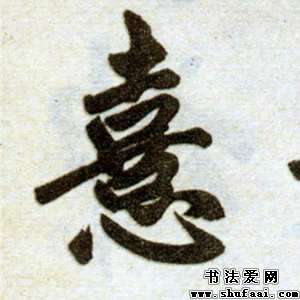 憙
书法爱网
www.shufaai.com